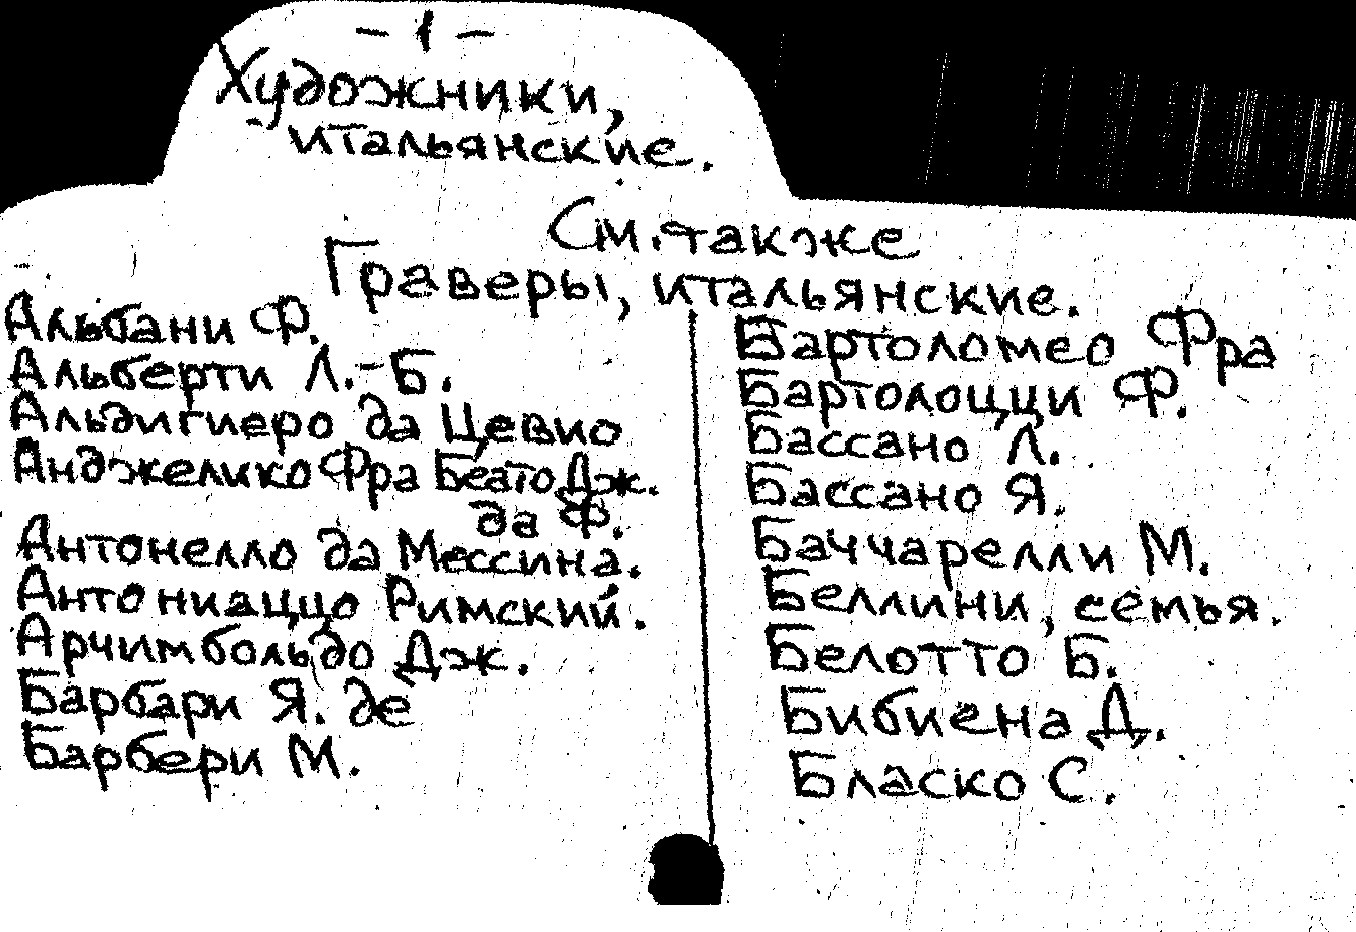 - 1 -
Художники,
итальянские.
См. также
Граверы, итальянские.
Альбани Ф.
Альберти Л.-Б.
Альдигиеро да Цевио
Анджелико Фра Беато Дж.
да Ф.
Антонелло да Мессина.
Антониаццо Римский.
Арчимбольдо Дж.
Барбари Я. де
Барбери М.
Бартоломео Фра
Бартолоцци Ф.
Бассано Л.
Бассано Я.
Баччарелли М.
Беллини, семья.
Белотто Б.
Бибиена Д.
Бласко С.